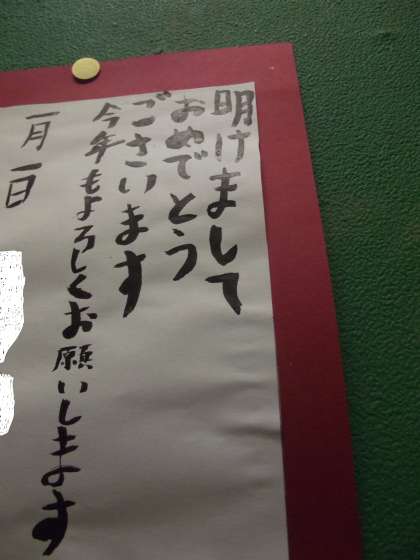 明けまして
おめでとう
ございます
今年もよろしくお願いします
一月一日